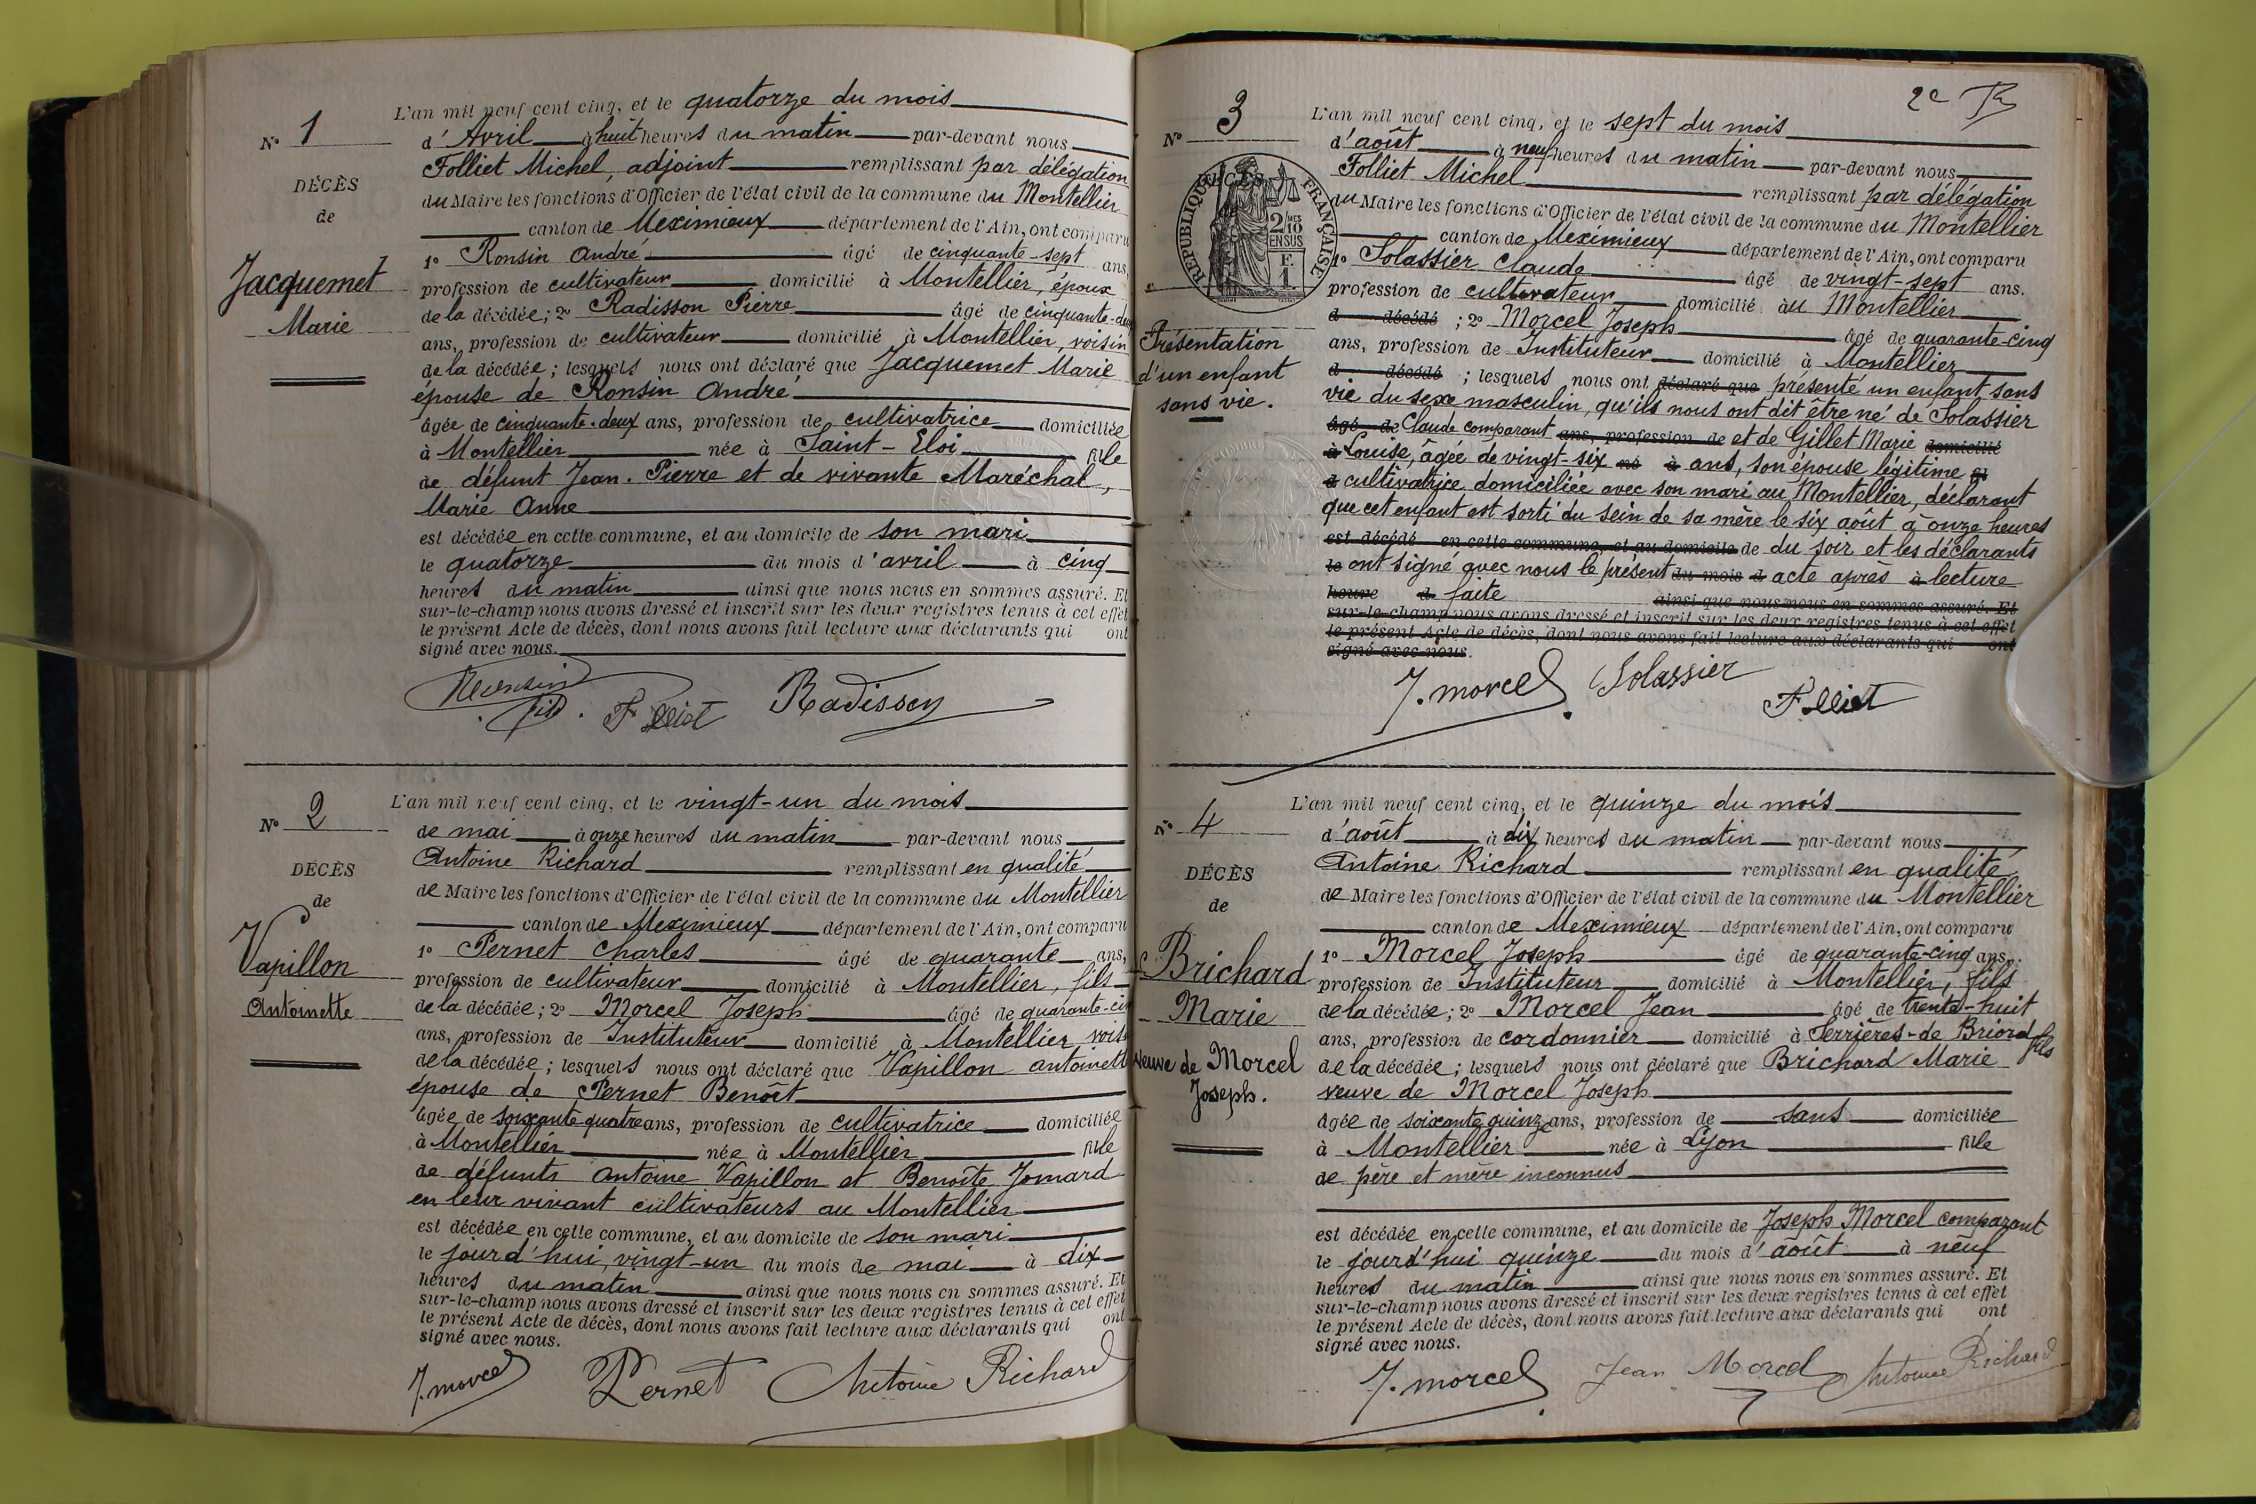 L'an mil neuf cent cinq, et le quatorze du mois
N° 1
d'Avril à huit heures du matin par-devant nous
Folliet Michel, adjoint remplissant par délégation
DÉCÈS
du Maire les fonctions d'Officier de l'état civil de la commune du Montellier
de
canton de Meximieux département de l'Ain, ont comparu
1° Ronsin André âgé de cinquante-sept ans,
Jacquemet
profession de cultivateur domicilié à Montellier, époux
Marie
de la décédée; 2° Radisson Pierre âgé de cinquante-deux
ans, profession de cultivateur domicilié à Montellier, voisin
de la décédée; lesquels nous ont déclaré que Jacquemet Marie
épouse de Ronsin André
âgée de cinquante-deux ans, profession de cultivatrice domiciliée
à Montellier née à Saint-Eloi fille
de défunt Jean-Pierre et de vivante Maréchal,
Marie Anne
est décédée en cette commune, et au domicile de son mari
le quatorze du mois d'avril à cinq
heures du matin ainsi que nous nous en sommes assuré. Et
sur-le-champ nous avons dressé et inscrit sur les deux registres tenus à cet effet
le présent Acte de décès, dont nous avons fait lecture aux déclarants qui ont
signé avec nous.
Ronsin Folliet Radisson
L'an mil neuf cent cinq, et le vingt-un du mois
N° 2
de mai à onze heures du matin par-devant nous
Antoine Richard remplissant en qualité
DÉCÈS
de Maire les fonctions d'Officier de l'état civil de la commune du Montellier
de
canton de Meximieux département de l'Ain, ont comparu
Vapillon
1° Pernet Charles âgé de quarante ans,
profession de cultivateur domicilié à Montellier, fils
Antoinette
de la décédée; 2° Morcel Joseph âgé de quarante-cin
ans, profession de Instituteur domicilié à Montellier, vois
de la décédée; lesquels nous ont déclaré que Vapillon antoinett
épouse de Pernet Benoît
âgée de soixante quatre ans, profession de cultivatrice domiciliée
à Montellier née à Montellier fille
de défunts Antoine Vapillon et Benoîte Jomard
en leur vivant cultivateurs au Montellier
est décédée en cette commune, et au domicile de son mari
le jourd'hui, vingt-un du mois de mai à dix
heures du matin ainsi que nous nous en sommes assuré. Et
sur-le-champ nous avons dressé et inscrit sur les deux registres tenus à cet effet
le présent Acte de décès, dont nous avons fait lecture aux déclarants qui ont
signé avec nous.
J. morcel Pernet Antoine Richard
2e
L'an mil neuf cent cinq, et le sept du mois
N° 3
d'août à neuf heures du matin par-devant nous
Folliet Michel remplissant par délégation
DÉCÈS
RÉPUBLIQUE FRANÇAISE
2/10 EN SUS
F. 1.
du Maire les fonctions d'Officier de l'état civil de la commune du Montellier
canton de Meximieux département de l'Ain, ont comparu
1° Solassier Claude âgé de vingt-sept ans.
profession de cultivateur domicilié au Montellier
Présentation
d'un enfant
sans vie.
d décédé; 2° Morcel Joseph âgé de quarante-cinq
ans, profession de Instituteur domicilié à Montellier
d décédé; lesquels nous ont déclaré que présenté un enfant sans
vie du sexe masculin, qu'ils nous ont dit être né de Solassier
âgé de Claude comparant ans, profession de et de Gillet Marie domicilié
à Louise, âgée de vingt-six né à ans, son épouse légitime
d cultivatrice domiciliée avec son mari au Montellier, déclarant
que cet enfant est sorti du sein de sa mère le six août à onze heures
est décédé en cette commune, et au domicile de du soir et les déclarants
le ont signé avec nous le présent du mois d acte après à lecture
heure d faite ainsi que nous nous en sommes assuré. Et
sur-le-champ nous avons dressé et inscrit sur les deux registres tenus à cet effet
le présent Acte de décès, dont nous avons fait lecture aux déclarants qui ont
signé avec nous.
J. morcel Solassier Folliet
L'an mil neuf cent cinq, et le quinze du mois
N° 4
d'août à dix heures du matin par-devant nous
Antoine Richard remplissant en qualité
DÉCÈS
de Maire les fonctions d'Officier de l'état civil de la commune du Montellier
de
canton de Meximieux département de l'Ain, ont comparu
Brichard
1° Morcel Joseph âgé de quarante-cinq ans,
profession de Instituteur domicilié à Montellier, fils
Marie
de la décédée; 2° Morcel Jean âgé de trente-huit
ans, profession de cordonnier domicilié à Serrières-de Briord fils
veuve de Morcel
Joseph.
de la décédée; lesquels nous ont déclaré que Brichard Marie
veuve de Morcel Joseph
âgée de soixante quinze ans, profession de sans domiciliée
à Montellier née à Lyon fille
de père et mère inconnus
est décédée en cette commune, et au domicile de Joseph Morcel comparant
le jourd'hui quinze du mois d'août à neuf
heures du matin ainsi que nous nous en sommes assuré. Et
sur-le-champ nous avons dressé et inscrit sur les deux registres tenus à cet effet
le présent Acte de décès, dont nous avons fait lecture aux déclarants qui ont
signé avec nous.
J. morcel Jean Morcel Antoine Richard